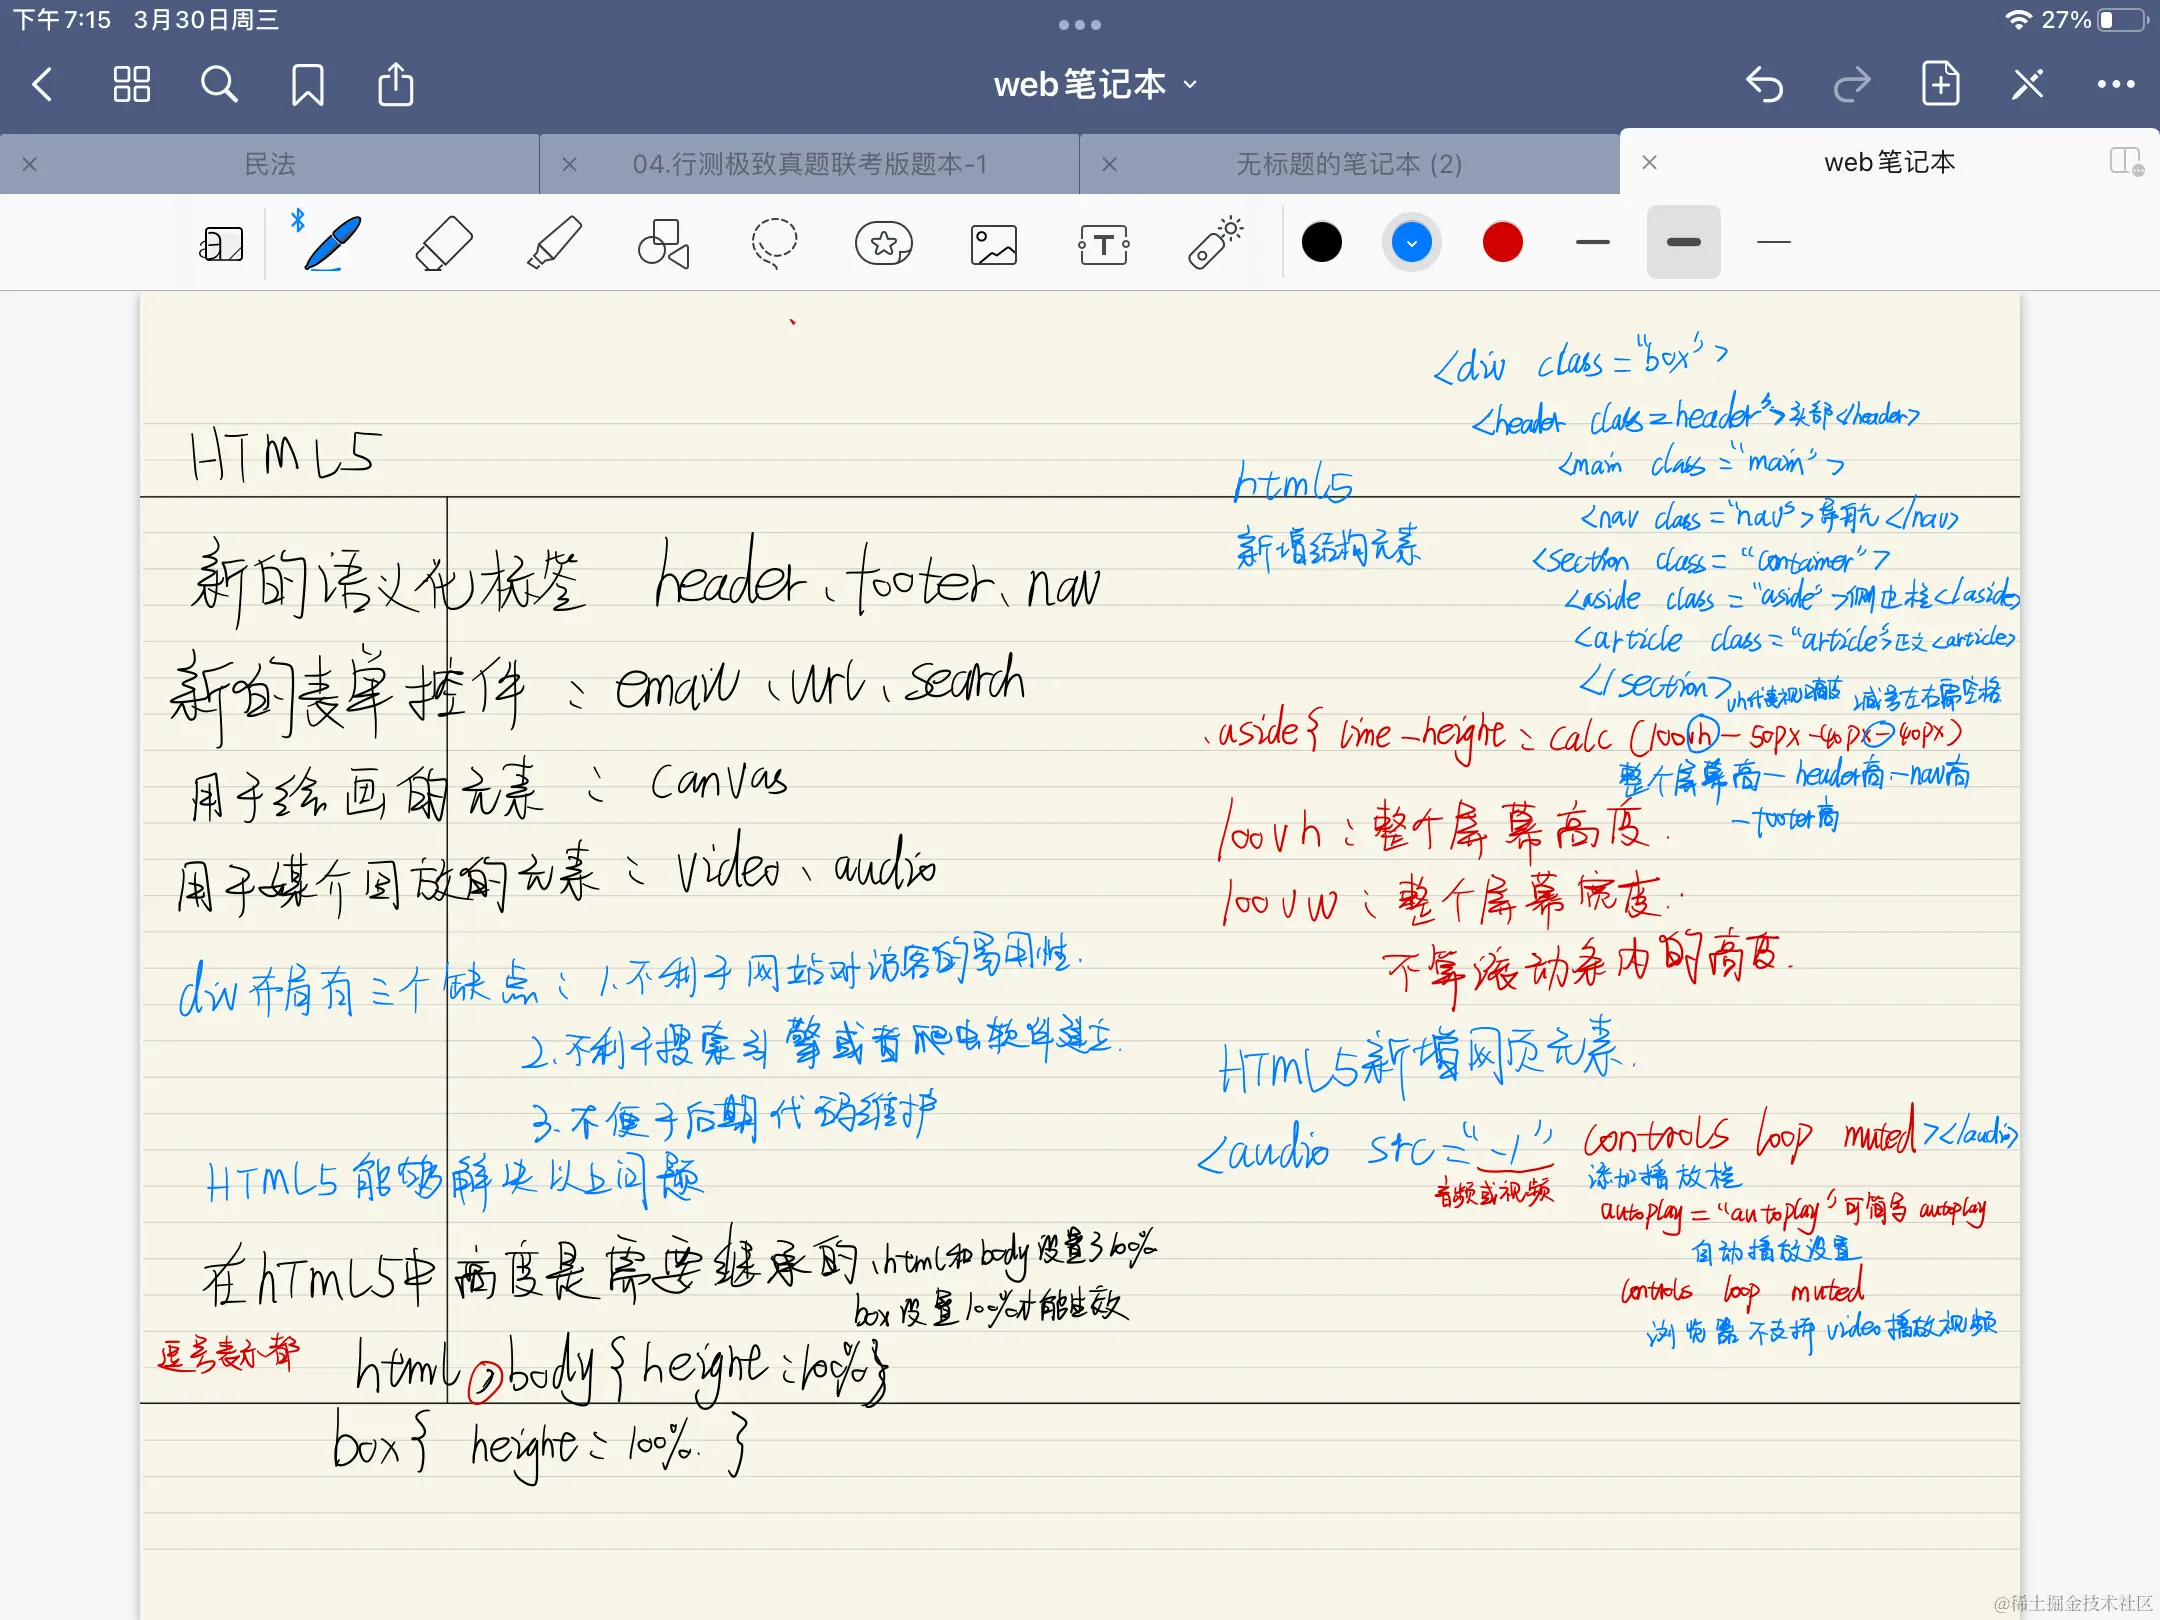 下午7:15 3月30日周三
27%
web笔记本
民法
04.行测极致真题联考版题本-1
无标题的笔记本 (2)
web笔记本
HTML5
新的语义化标签 header、footer、nav
新的表单控件：email、url、search
用于绘画的元素：canvas
用于媒介回放的元素：video、audio
div布局有三个缺点：1.不利于网站对访客的易用性.
2.不利于搜索引擎或者爬虫软件建立.
3.不便于后期代码维护
HTML5能够解决以上问题
在HTML5中高度是需要继承的、html和body设置了100%
box设置100%才能生效
逗号表示都
html,body{height:100%}
box{ height:100%. }
<div class="box">
<header class=header">头部</header>
<main class="main">
html5
新增结构元素
<nav class="nav">导航</nav>
<section class="container">
<aside class="aside">侧边栏</aside>
<article class="article">正文<article>
</section>
vh代表视口高度 减号左右需空格
.aside{line-height:calc(100vh-50px-40px-40px)
整个屏幕高-header高-nav高
-footer高
100vh:整个屏幕高度.
100vw:整个屏幕宽度.
不算滚动条内的高度.
HTML5新增网页元素.
<audio src="-1" controls loop muted></audio>
音频或视频 添加播放栏
autoplay="autoplay"可简写 autoplay
自动播放设置
controls loop muted
浏览器不支持video播放视频
@稀土掘金技术社区